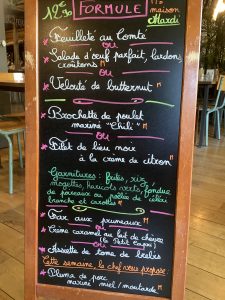 12€90 FORMULE
maison
Mardi
Feuilleté au Comté
ou
Salade d'œuf parfait, lardons, croutons M
ou
Velouté de butternut M
Brochette de poulet
mariné "Chili" M
ou
Filet de lieu noir
à la crème de citron M
Garnitures : frites, riz,
mogettes, haricots verts, fondue
de poireaux ou poêlée de céleri
branche et carottes
Far aux pruneaux M
ou
Crème caramel au lait de chèvre
(le Petit Caage)
ou
Assiette de tome de brebis
Cette semaine, le chef vous propose
Pluma de porc
mariné miel/moutarde M